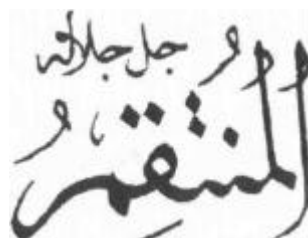 جل جلاله
المنتقم